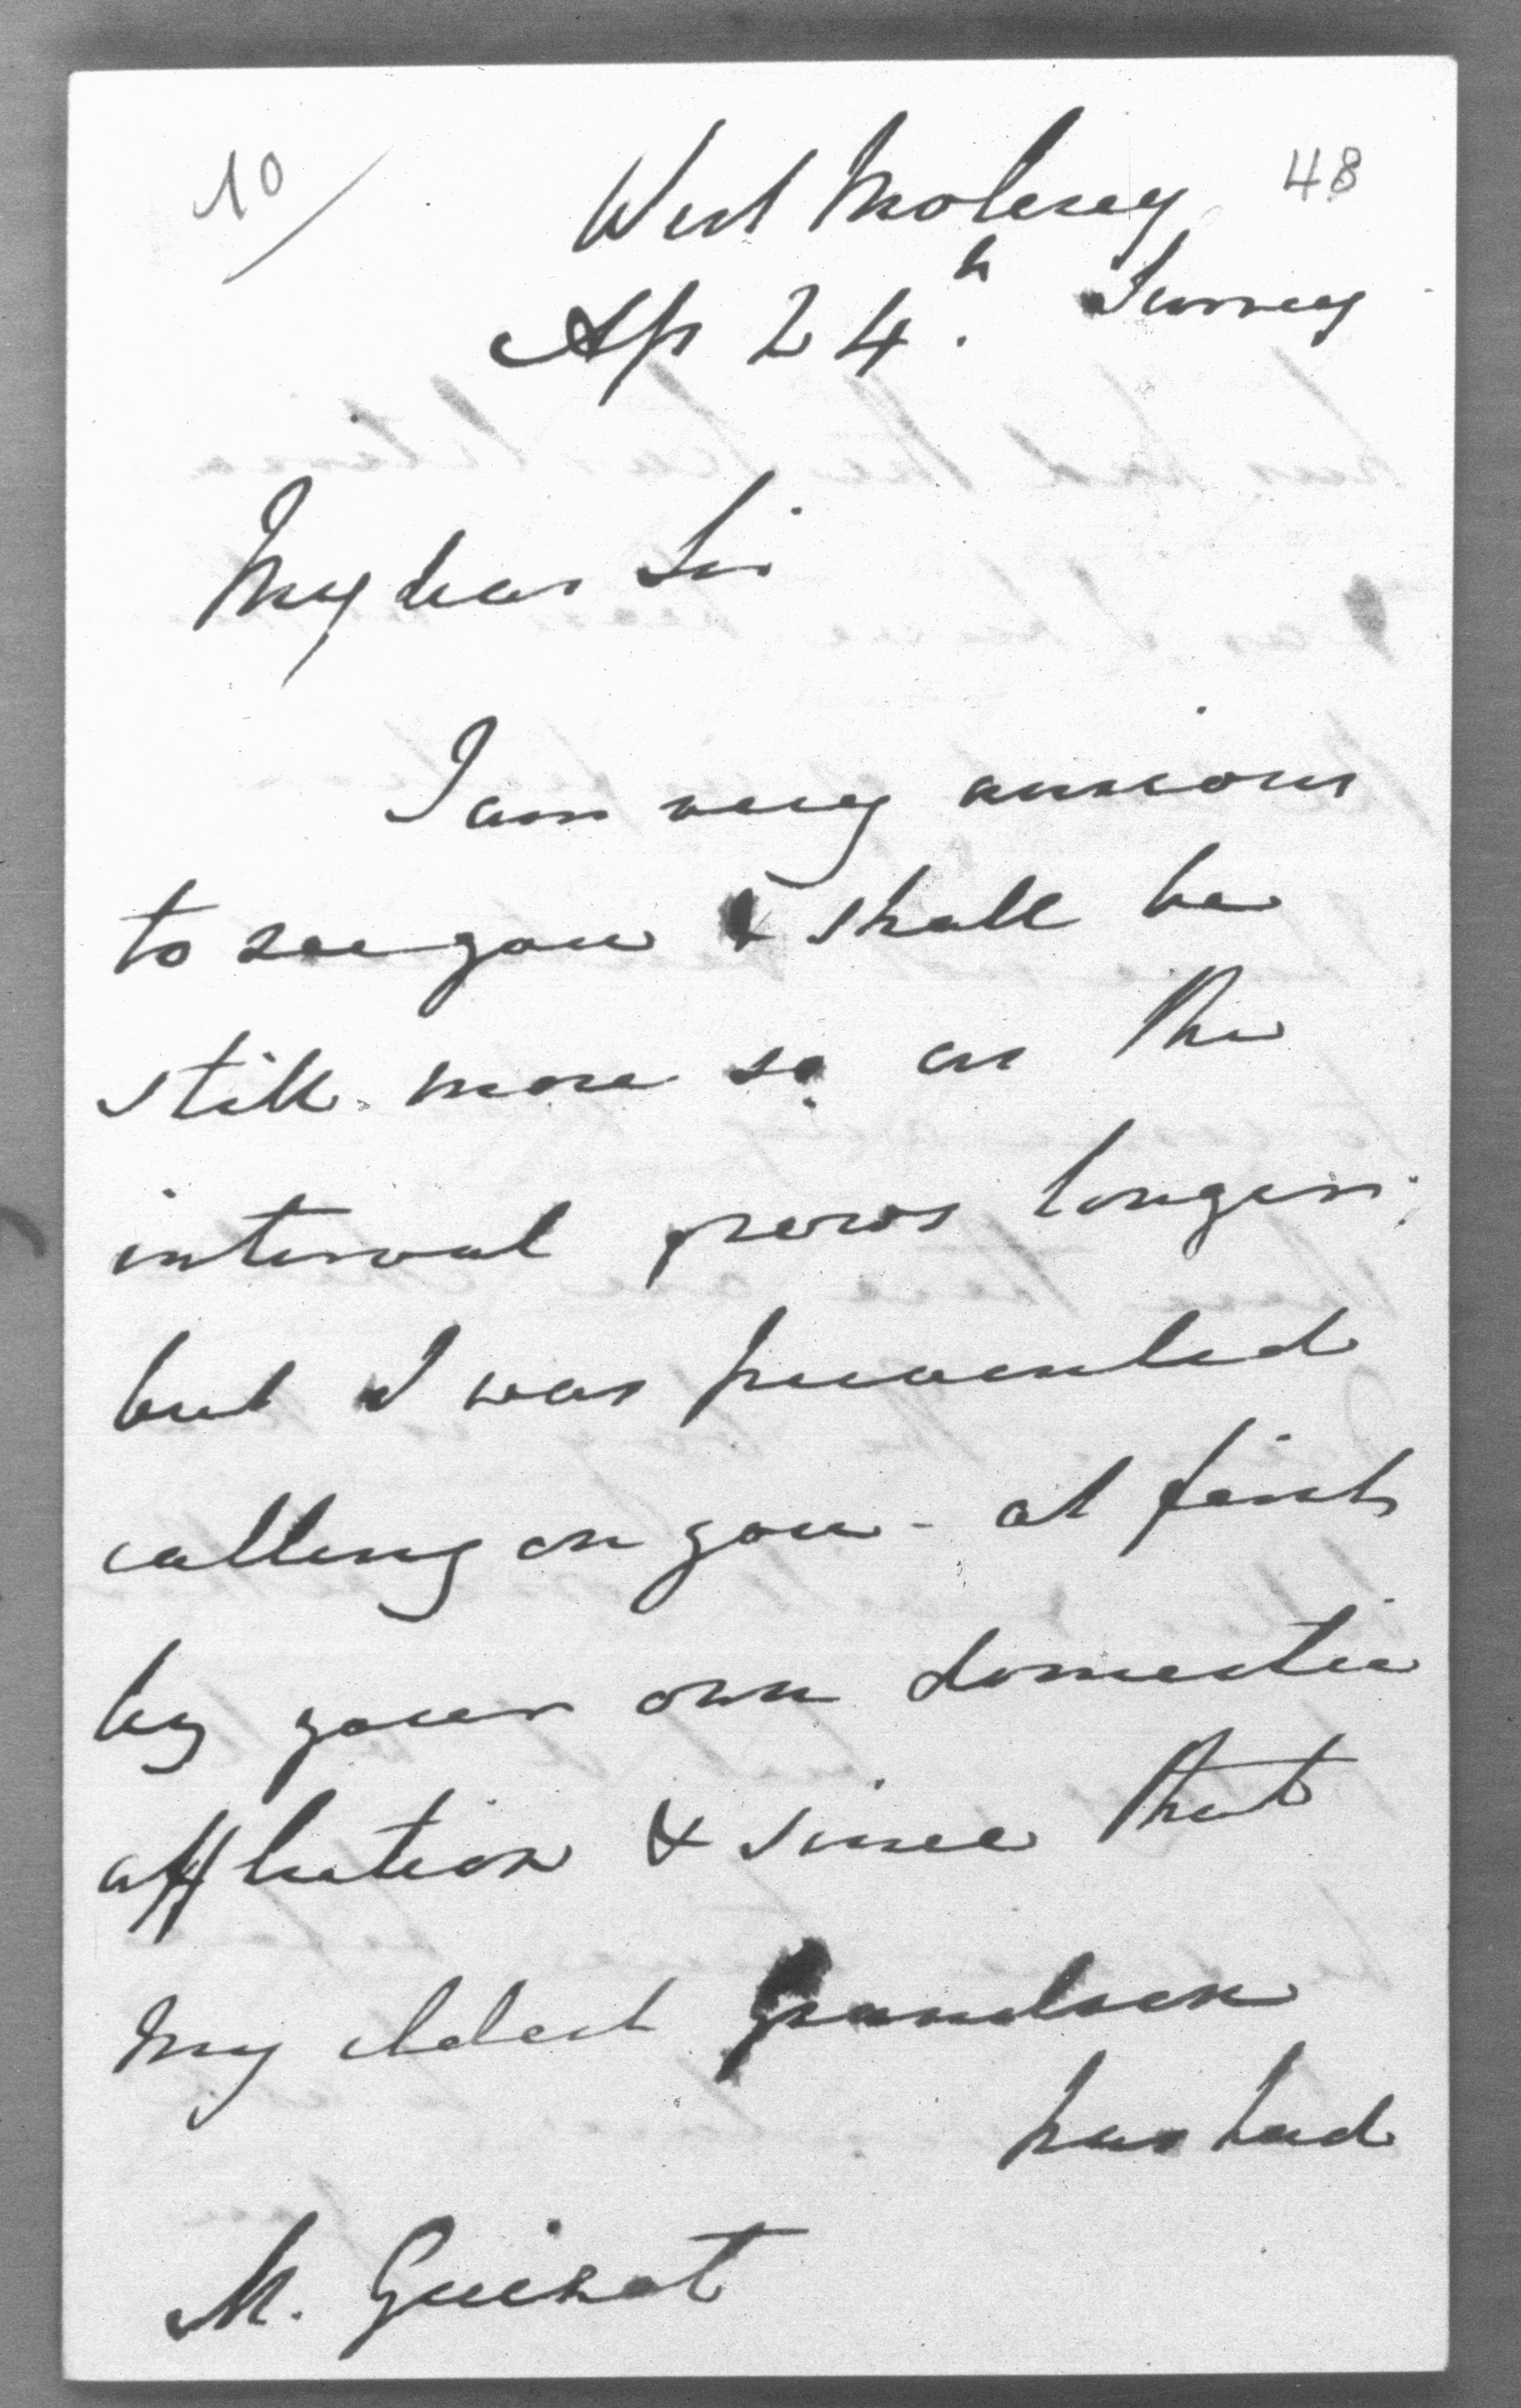 10/
48
West Molesey
Ap 24.h Surrey
My dear Sir
I am very anxious
to see you & shall be
still more so as the
interval grows longer;
but I was prevented
calling on you - at first
by your own domestic
affliction & since that
my eldest grandson
has had
M. Guizot